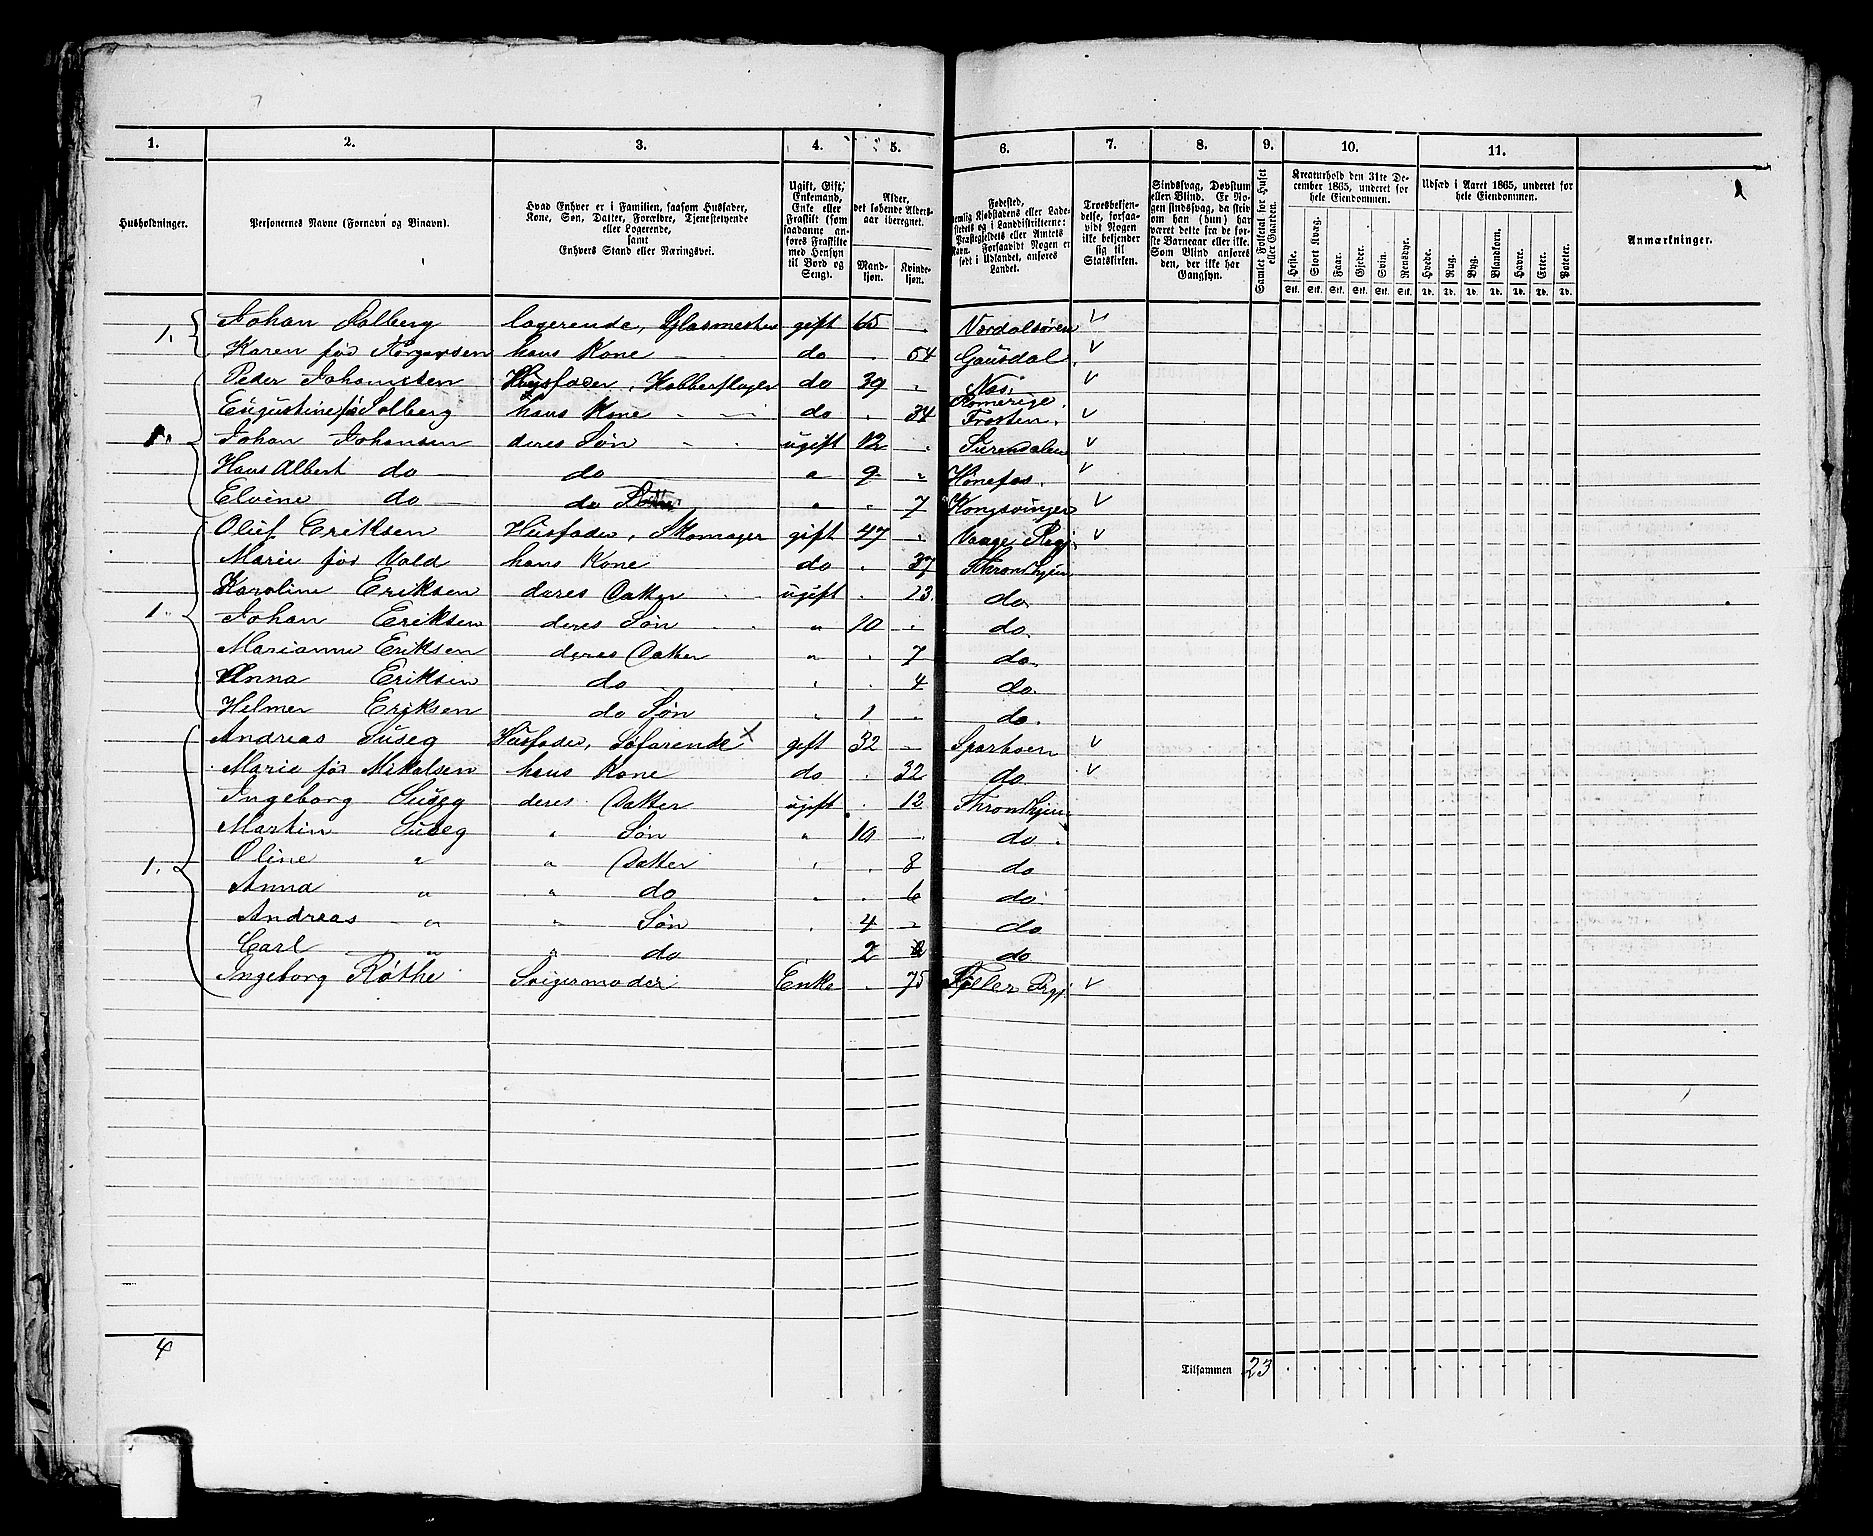 1. 2. 3. 4. 5. 6. 7. 8. 9. 10. 11.
Husholdninger.
Personernes Navne (Fornavn og Binavn).
Hvad Enhver er i Familien, saasom Husfader, Kone, Søn, Datter, Forældre, Tjenestetyende eller Logerende, samt Enhvers Stand eller Næringsvei.
Ugift, Gift, Enkemand, Enke eller Fraskilt (som saadanne anføres Fraskilte med Hensyn til Bord og Seng).
Alder, det løbende Aldersaar iberegnet.
Mandkjøn. Kvindekjøn.
Fødested,
Præstegjeldets eller Amtets Navn. Forsaavidt Nogen er født i Udlandet, anføres Landet.
Troesbekjendelse, forsaavidt Nogen ikke bekjender sig til Statskirken.
Sindssvag, Døvstum eller Blind. Er Nogen sindssvag, da skriv om han (hun) har været dette fra de første Barneaar eller ikke. Som Blind anføres den, der ikke har Gangsyn.
Samlet Folketal for Huset eller Gaarden.
Kreaturhold den 31te December 1865, underet for hele Eiendommen.
Heste. Stort Kvæg. Faar. Gjeder. Svin. Rensdyr.
Udsæd i Aaret 1865, underet for hele Eiendommen.
Hvede. Rug. Byg. Blandkorn. Havre. Erter. Poteter.
Stk. Stk. Stk. Stk. Stk. Stk. Td. Td. Td. Td. Td. Td. Td.
Anmærkninger.
1. Johan Solberg logerende, Glasmester gift 65 Værdalsøren
Karen fød Jørgensen hans Kone do 54 Gausdal
Peder Johannsen Husfader, Kobberslager do 39 Næs, Romerige
Eugustine fø Solberg hans Kone do 34 Frosten.
1. Johan Johansen deres Søn ugift 12 Surendalen
Hans Albert do do " 9 Hønefos.
Elvine do do " 7 Kongsvinger
Oluf Eriksen Husfader, Skomager gift 47 Vaage
Marie fød Vold hans Kone do 37 Throndhjem
Karoline Eriksen deres Datter ugift 13 do.
1. Johan Eriksen deres Søn " 10 do.
Marianne Eriksen deres Datter " 7 do.
Anna Eriksen do " 4 do.
Helmer Eriksen do Søn " 1 do.
Andreas Suseg Husfader, Søfarende x gift 32 Sparboen
Marie fød Mikalsen hans Kone do 32 do
Ingeborg Suseg deres Datter ugift 12 Throndhjem
Martin Suseg " Søn " 10 do.
1. Oline " " Datter 8 do
Anna " " do " 6 do
Andreas " " Søn 4 do
Carl " " do 2 do
Ingeborg Røthe Svigermoder Enke 75
4
Tilsammen 23